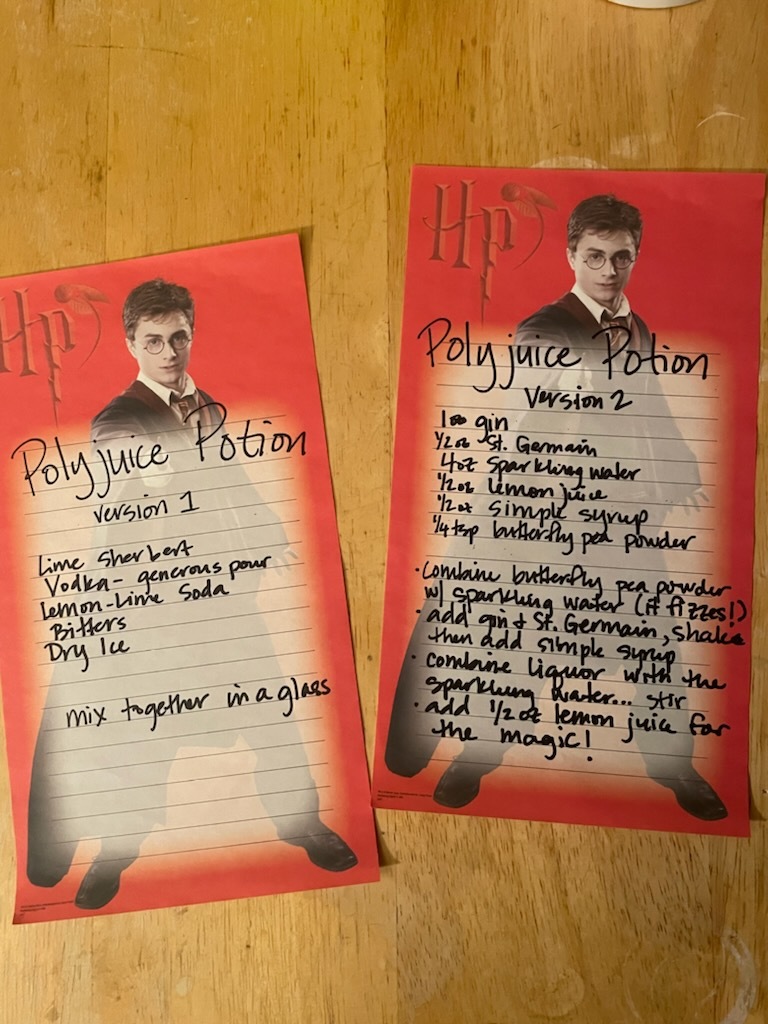 Hp
Polyjuice Potion
version 1
Lime Sherbert
Vodka- generous pour
Lemon-Lime Soda
Bitters
Dry Ice
mix together in a glass
Hp
Polyjuice Potion
version 2
1oz gin
1/2oz St. Germain
4oz sparkling water
1/2oz lemon juice
1/2oz simple syrup
1/4tsp butterfly pea powder
•combine butterfly pea powder
w/ sparkling water (it fizzes!)
•add gin & St. Germain, shake
then add simple syrup
•combine liquor with the
sparkling water... stir
•add 1/2oz lemon juice for
the magic!